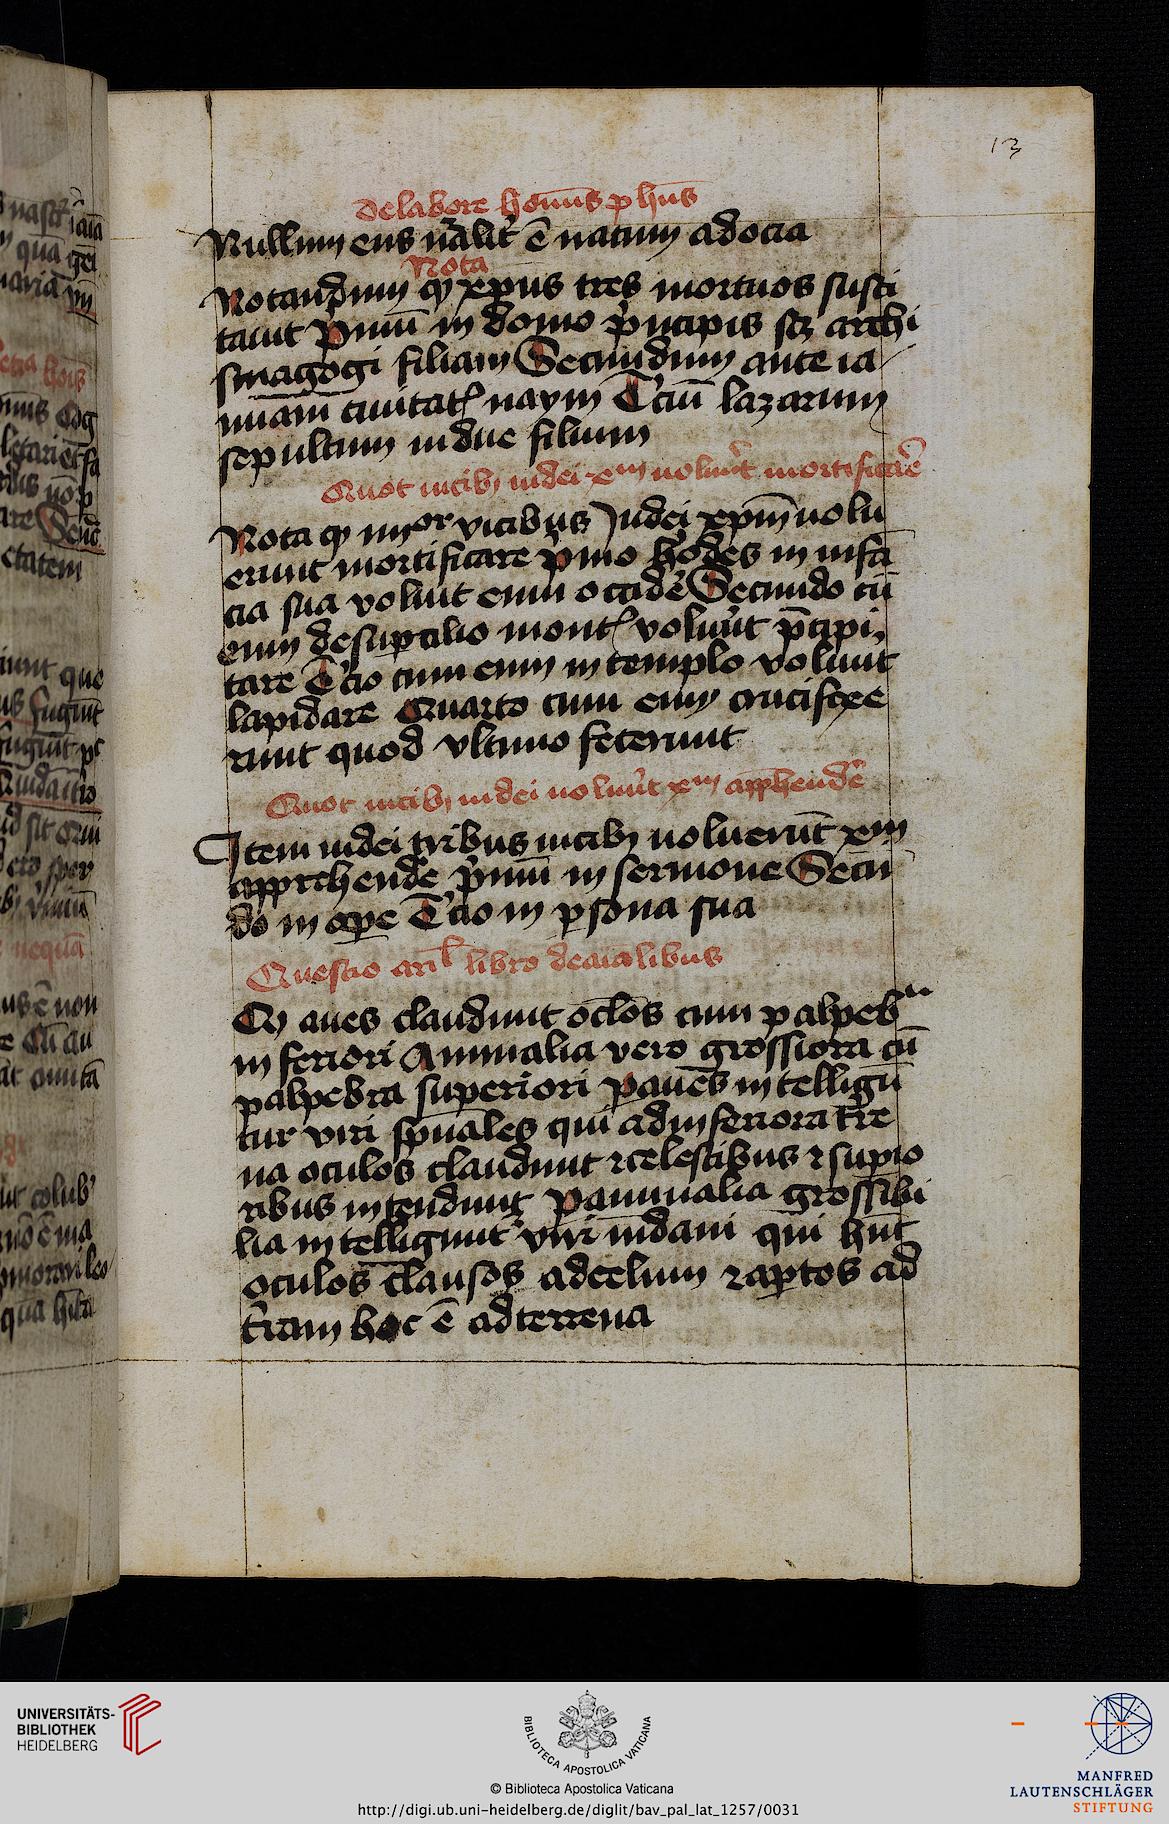 13
de labore homīs p̱ hūs
Nullum ens nāłit̕ ē natum ad ocia
Nota
Notandum ꝙ xp̄us tres mortuos susci
tauit p̓mū in domo p̓ncipis scꝫ archi
sinagogi filiam Secundum ante ia
nuam ciuitatꝭ naym T̓ciū lazarum
sepultum in due filium
Quot uicibꝫ iudei xᵐ uolūt mortificar̄e
Nota ꝙ iiijor vicibus Judei xp̄m uolu
erunt mortificare p̓mo h̓odes in infā
cia sua voluit eum occid̓e Secundo cū
eum de sup̱cilio montꝭ volūt p̄cipi
tare T̓cio cum eum in templo voluīt
lapidare Quarto cum eum crucifixe
runt quod vltimo fecerunt
Quot uicibꝫ iudei uolūt xᵐ app̱hend̓e
Item iudei tribus uicibꝫ uoluerūt xm
apprehend̓e p̓mū in sermone Secū
do in op̱e T̓cio in p̱sona sua
Questio aril libro de aīalibus
Cꝫ aues claudunt oclos cum palpebra
inferiori Animalia vero grossiora cū
palpebra superiori P̱ aues intelligū
tur viri sp̄uales qui ad inferiora t̓re
na oculos claudunt ⁊ celestibus ⁊ sup̱io
ribus intendunt P̱ animalia grossibi
lia intelligunt̕ viri mūdani qui hn̄t
oculos clausos ad celum ⁊ ap̱tos ad
t̓ram hoc ē ad terrena
UNIVERSITÄTS-
BIBLIOTHEK
HEIDELBERG
BIBLIOTECA APOSTOLICA VATICANA
© Biblioteca Apostolica Vaticana
http://digi.ub.uni-heidelberg.de/diglit/bav_pal_lat_1257/0031
MANFRED
LAUTENSCHLÄGER
STIFTUNG